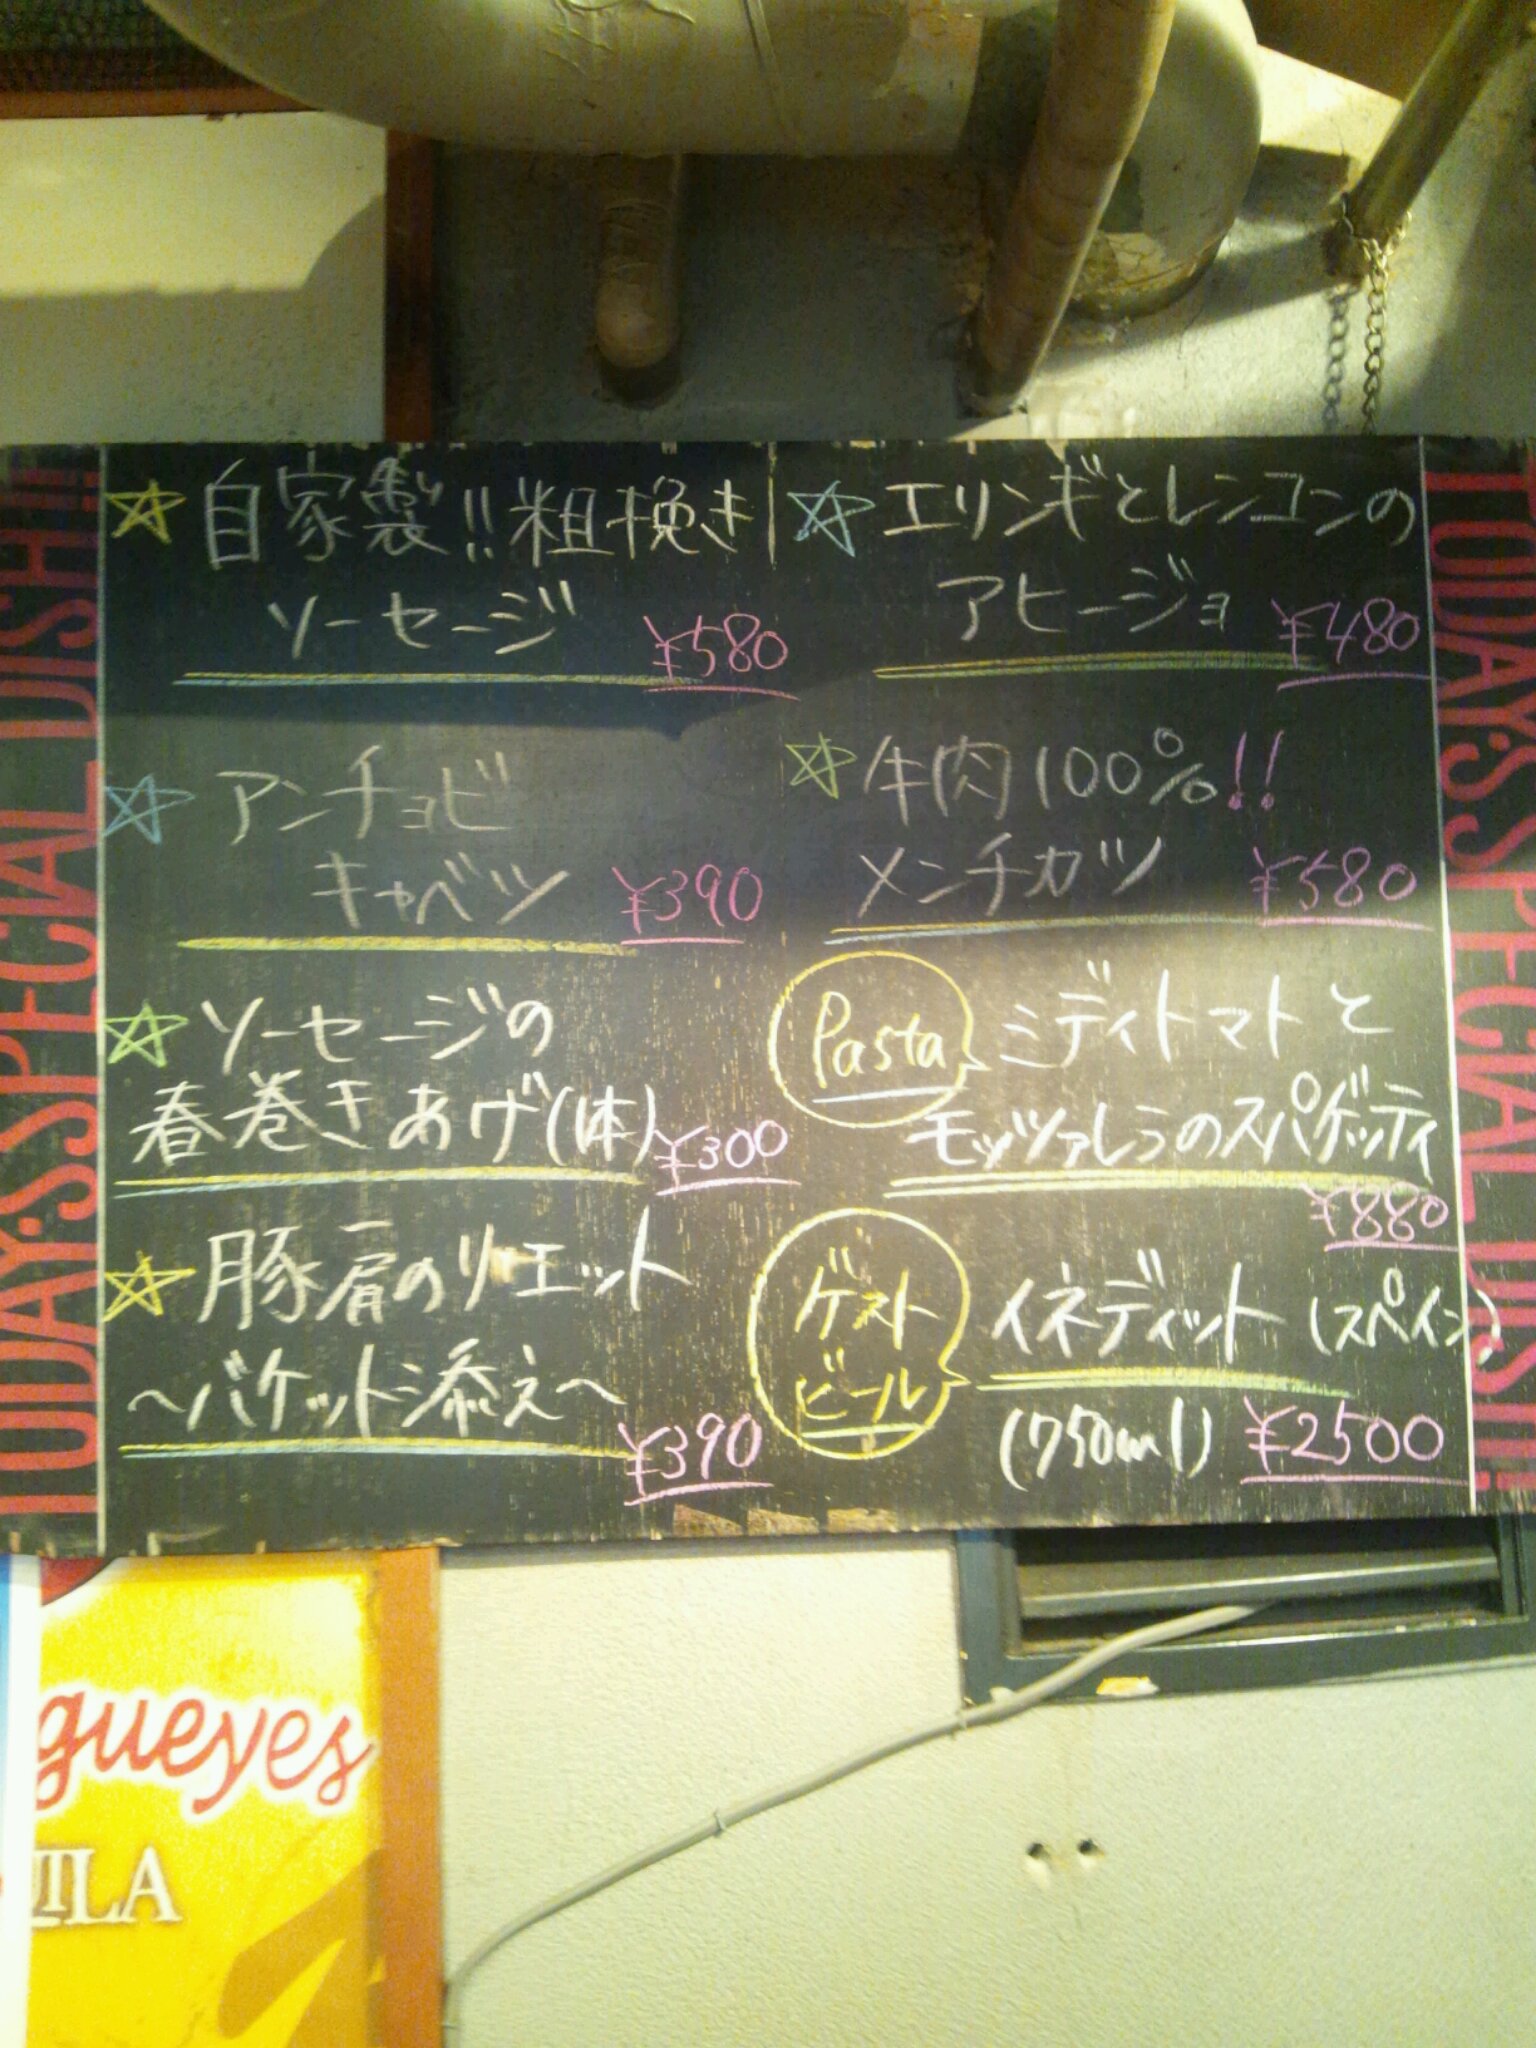 TODAY'S SPECIAL DISH!!
自家製!!粗挽き
ソーセージ ¥580
アンチョビ
キャベツ ¥390
ソーセージの
春巻きあげ(1本) ¥300
豚肩のリエット
～バケット添え～
¥390
エリンギとレンコンの
アヒージョ ¥480
牛肉100%!!
メンチカツ ¥580
Pasta ミディトマトと
モッツァレラのスパゲッティ
¥880
ゲスト
ビール
イネディット (スペイン)
(750ml) ¥2500
TODAY'S SPECIAL DISH!!
gueyes
ILA